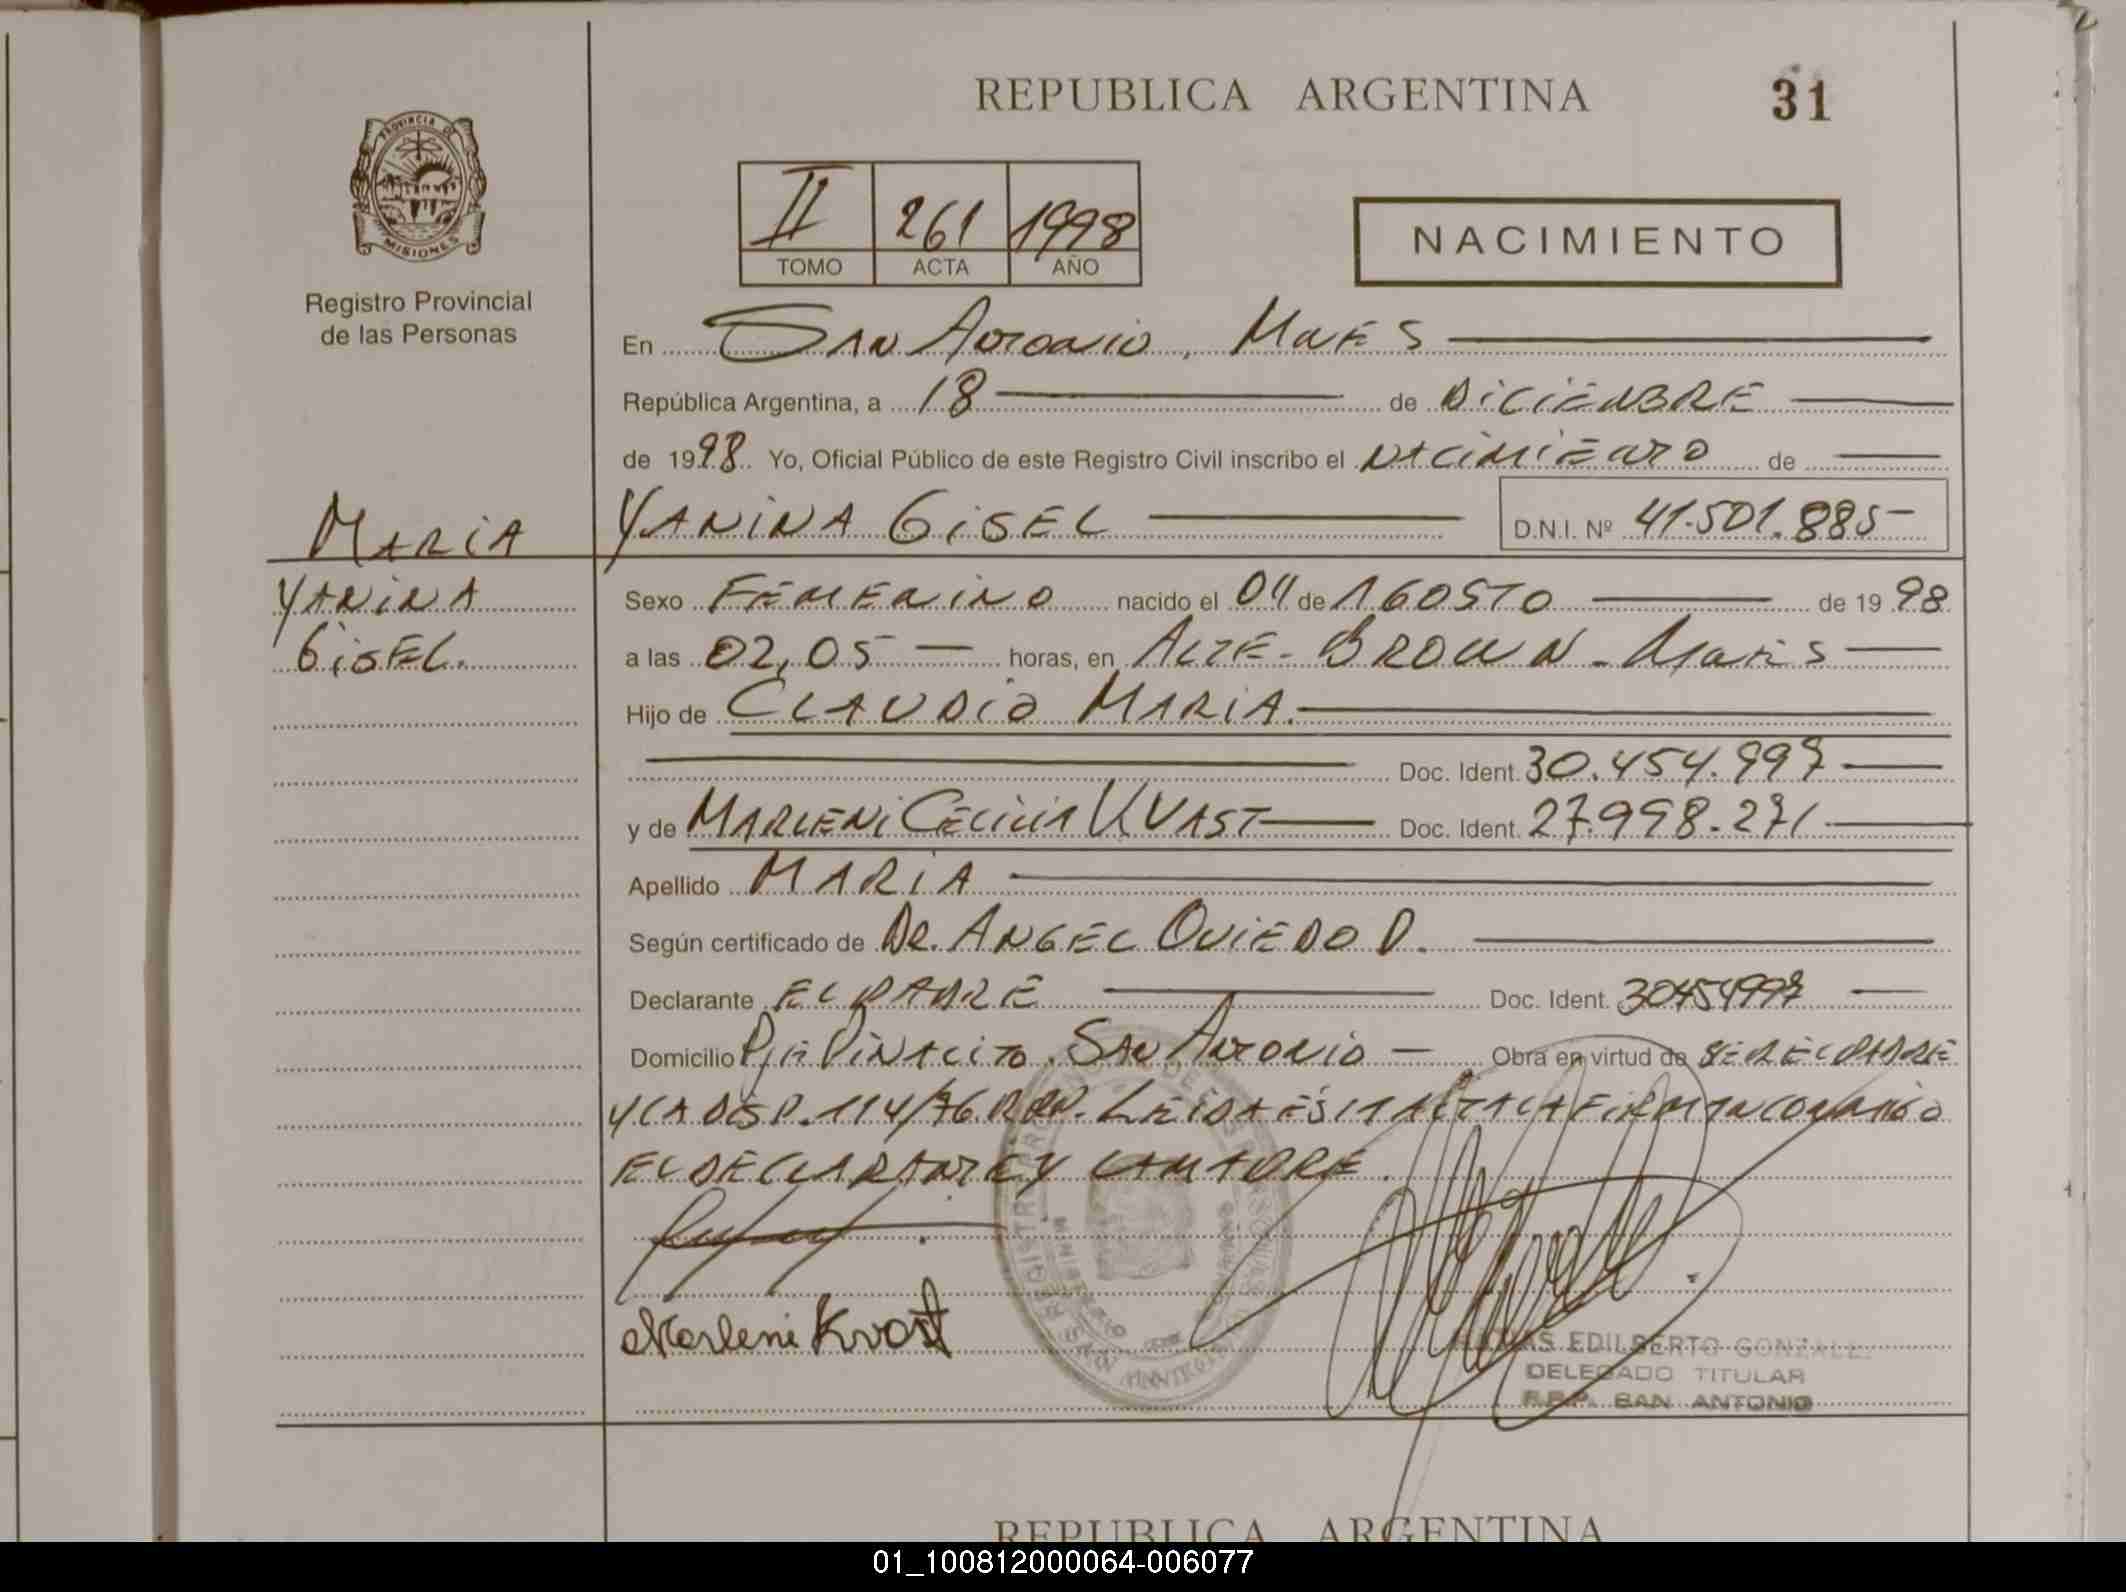 REPUBLICA ARGENTINA
31
PROVINCIA DE
MISIONES
Registro Provincial
de las Personas
II 261 1998
TOMO ACTA AÑO
NACIMIENTO
En San Antonio, Mnes
República Argentina, a 18 de DiCiEMBRE
de 1998 Yo, Oficial Público de este Registro Civil inscribo el NACiMiENTO de
MARiA
YANiNA GiSEL D.N.I. Nº 41.501.885-
YANiNA
GiSEL.
Sexo FEMENiNO nacido el 04 de AGOSTO de 1998
a las 02,05 horas, en ALTE- BROWN - Mnes
Hijo de CLAUDiO MARiA.
Doc. Ident. 30.454.997
y de MARLENi CECiLiA KVAST Doc. Ident. 27.998.271
Apellido MARiA
Según certificado de DR. ANGEL OViEDO D.
Declarante EL PADRE Doc. Ident. 30454997
Domicilio Pje PiÑALiTO. SAN ANTONiO Obra en virtud de SER EL PADRE
Y LA DiSP. 114/76. RPP. LEiDA ESTA ACTA LA FiRMAN CONMiGO
EL DECLARANTE Y LA MADRE.
Marleni Kvast
EDILBERTO GONZALE
DELEGADO TITULAR
R.P.P. SAN ANTONIO
REPUBLICA ARGENTINA
01_100812000064-006077